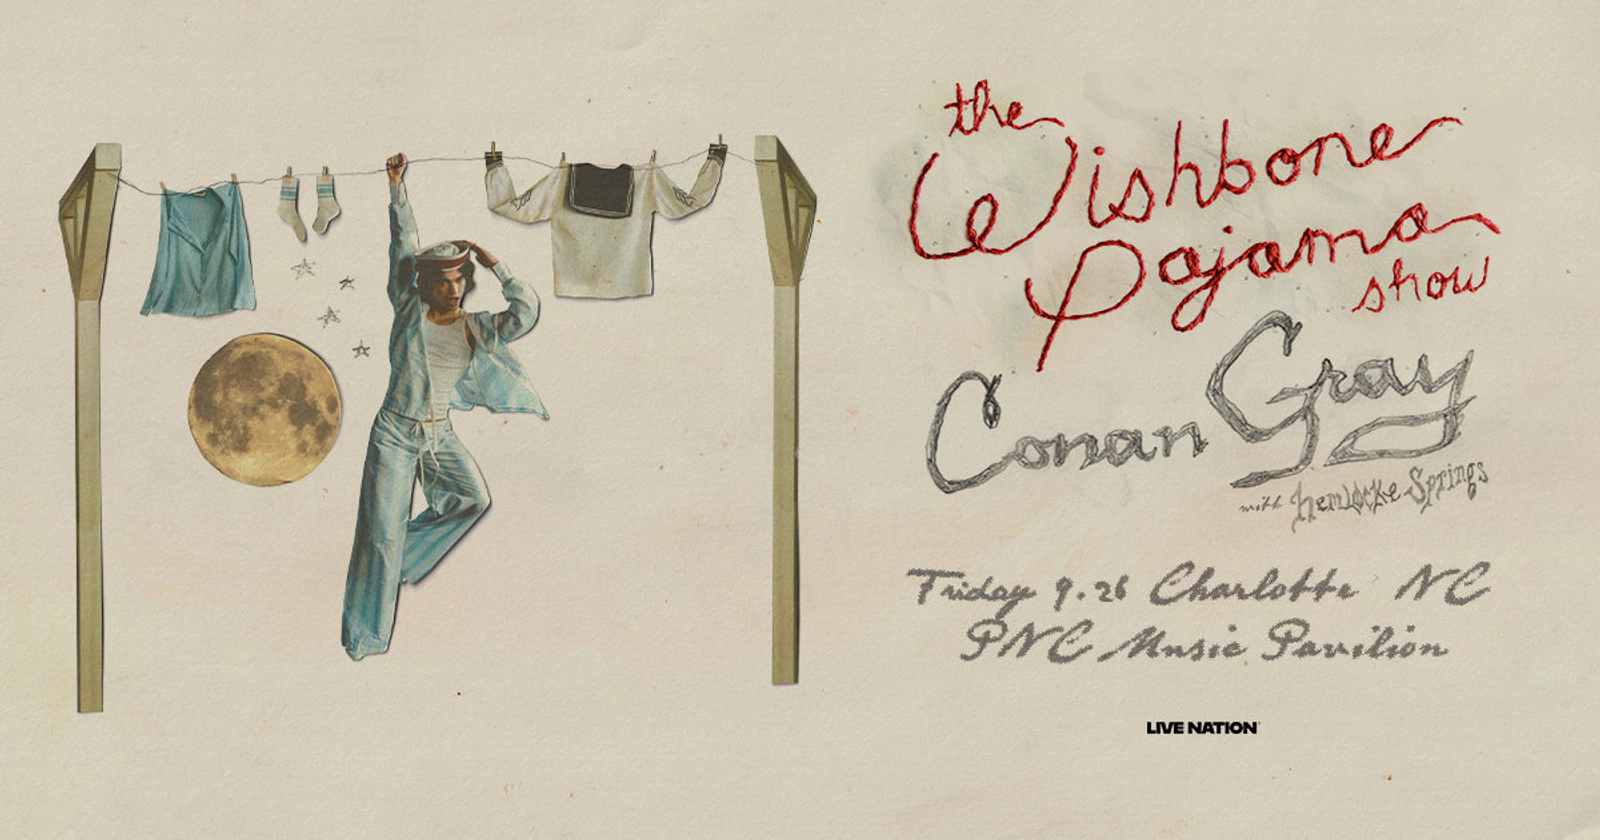 the
Wishbone
Pajama
show
Conan Gray
with Hemlocke Springs
Friday 9.26 Charlotte NC
PNC Music Pavilion
LIVE NATION